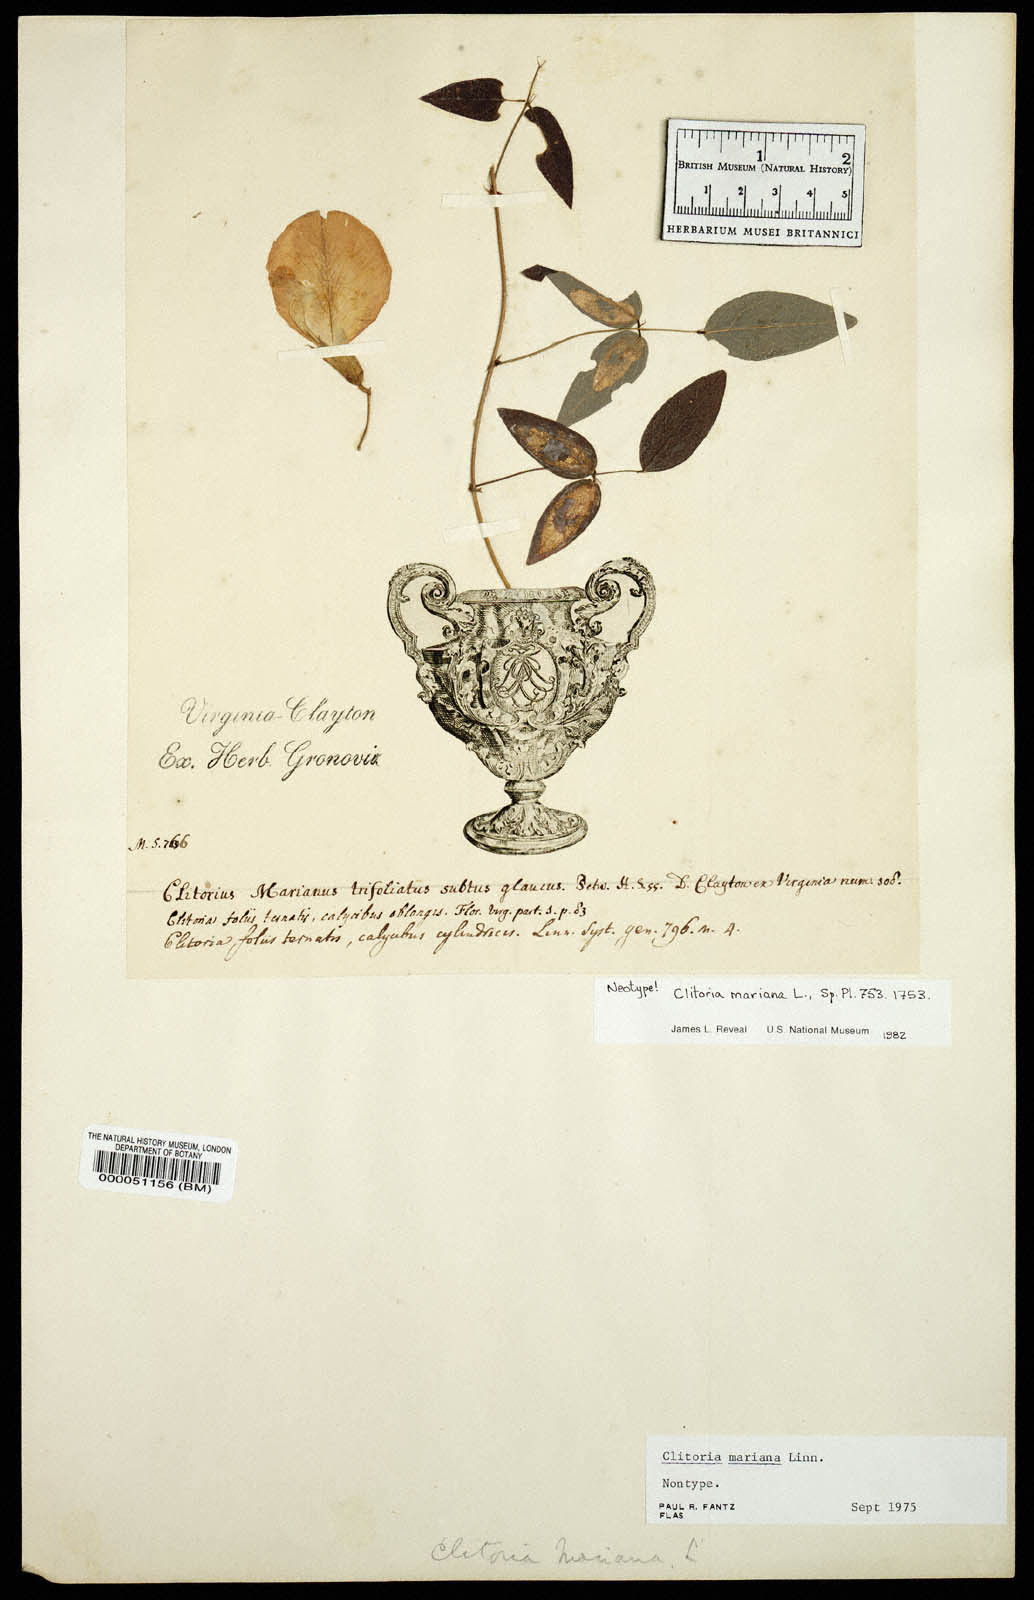 1 2
BRITISH MUSEUM (NATURAL HISTORY)
1 2 3 4 5
HERBARIUM MUSEI BRITANNICI
Virginia-Clayton
Ex. Herb Gronovii
M. S. 7636
Clitorius Marianus trifoliatus subtus glaucus. Petiv. H. S. 55. D. Clayton ex Virginia num. 108.
Clitoria foliis ternatis, calycibus oblongis. Flor. Virg. part. 1. p. 83
Clitoria, foliis ternatis, calycibus cylindricis. Linn. Syst. gen. 796. n. 4.
Neotype! Clitoria mariana L., Sp. Pl. 753. 1753.
James L. Reveal U.S. National Museum 1982
THE NATURAL HISTORY MUSEUM, LONDON
DEPARTMENT OF BOTANY
000051156 (BM)
Clitoria mariana Linn.
Nontype.
PAUL R. FANTZ Sept 1975
FLAS
Clitoria Mariana, L